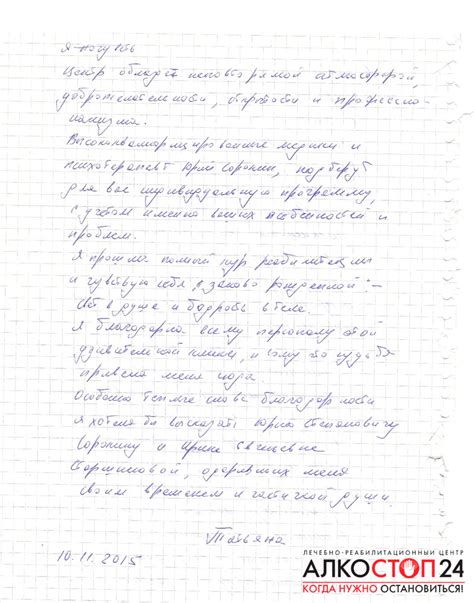 Я чувств
Центр обладает неповторимой атмосферой,
доброжелательности, открытости и професси-
нализма.
Высококвалифицированные медики и
психотерапевт Юрий Сорокин, подберут
для вас индивидуальную программу,
с учётом именно ваших особенностей и
проблем.
Я прошла полный курс реабилитации
и чувствую себя заново рожденной :-
свет в душе и бодрость в теле.
Я благодарна всему персоналу этой
удивительной клиники, и тому что судьба
привела меня сюда.
Особенно теплые слова благодарности
я хотела бы высказать Юрию Степановичу
Сорокину и Ирине
одаривших меня
своим временем и частичкой души.
Татьяна
10.11.2015
ЛЕЧЕБНО-РЕАБИЛИТАЦИОННЫЙ ЦЕНТР
АЛКОСТОП24
КОГДА НУЖНО ОСТАНОВИТЬСЯ!